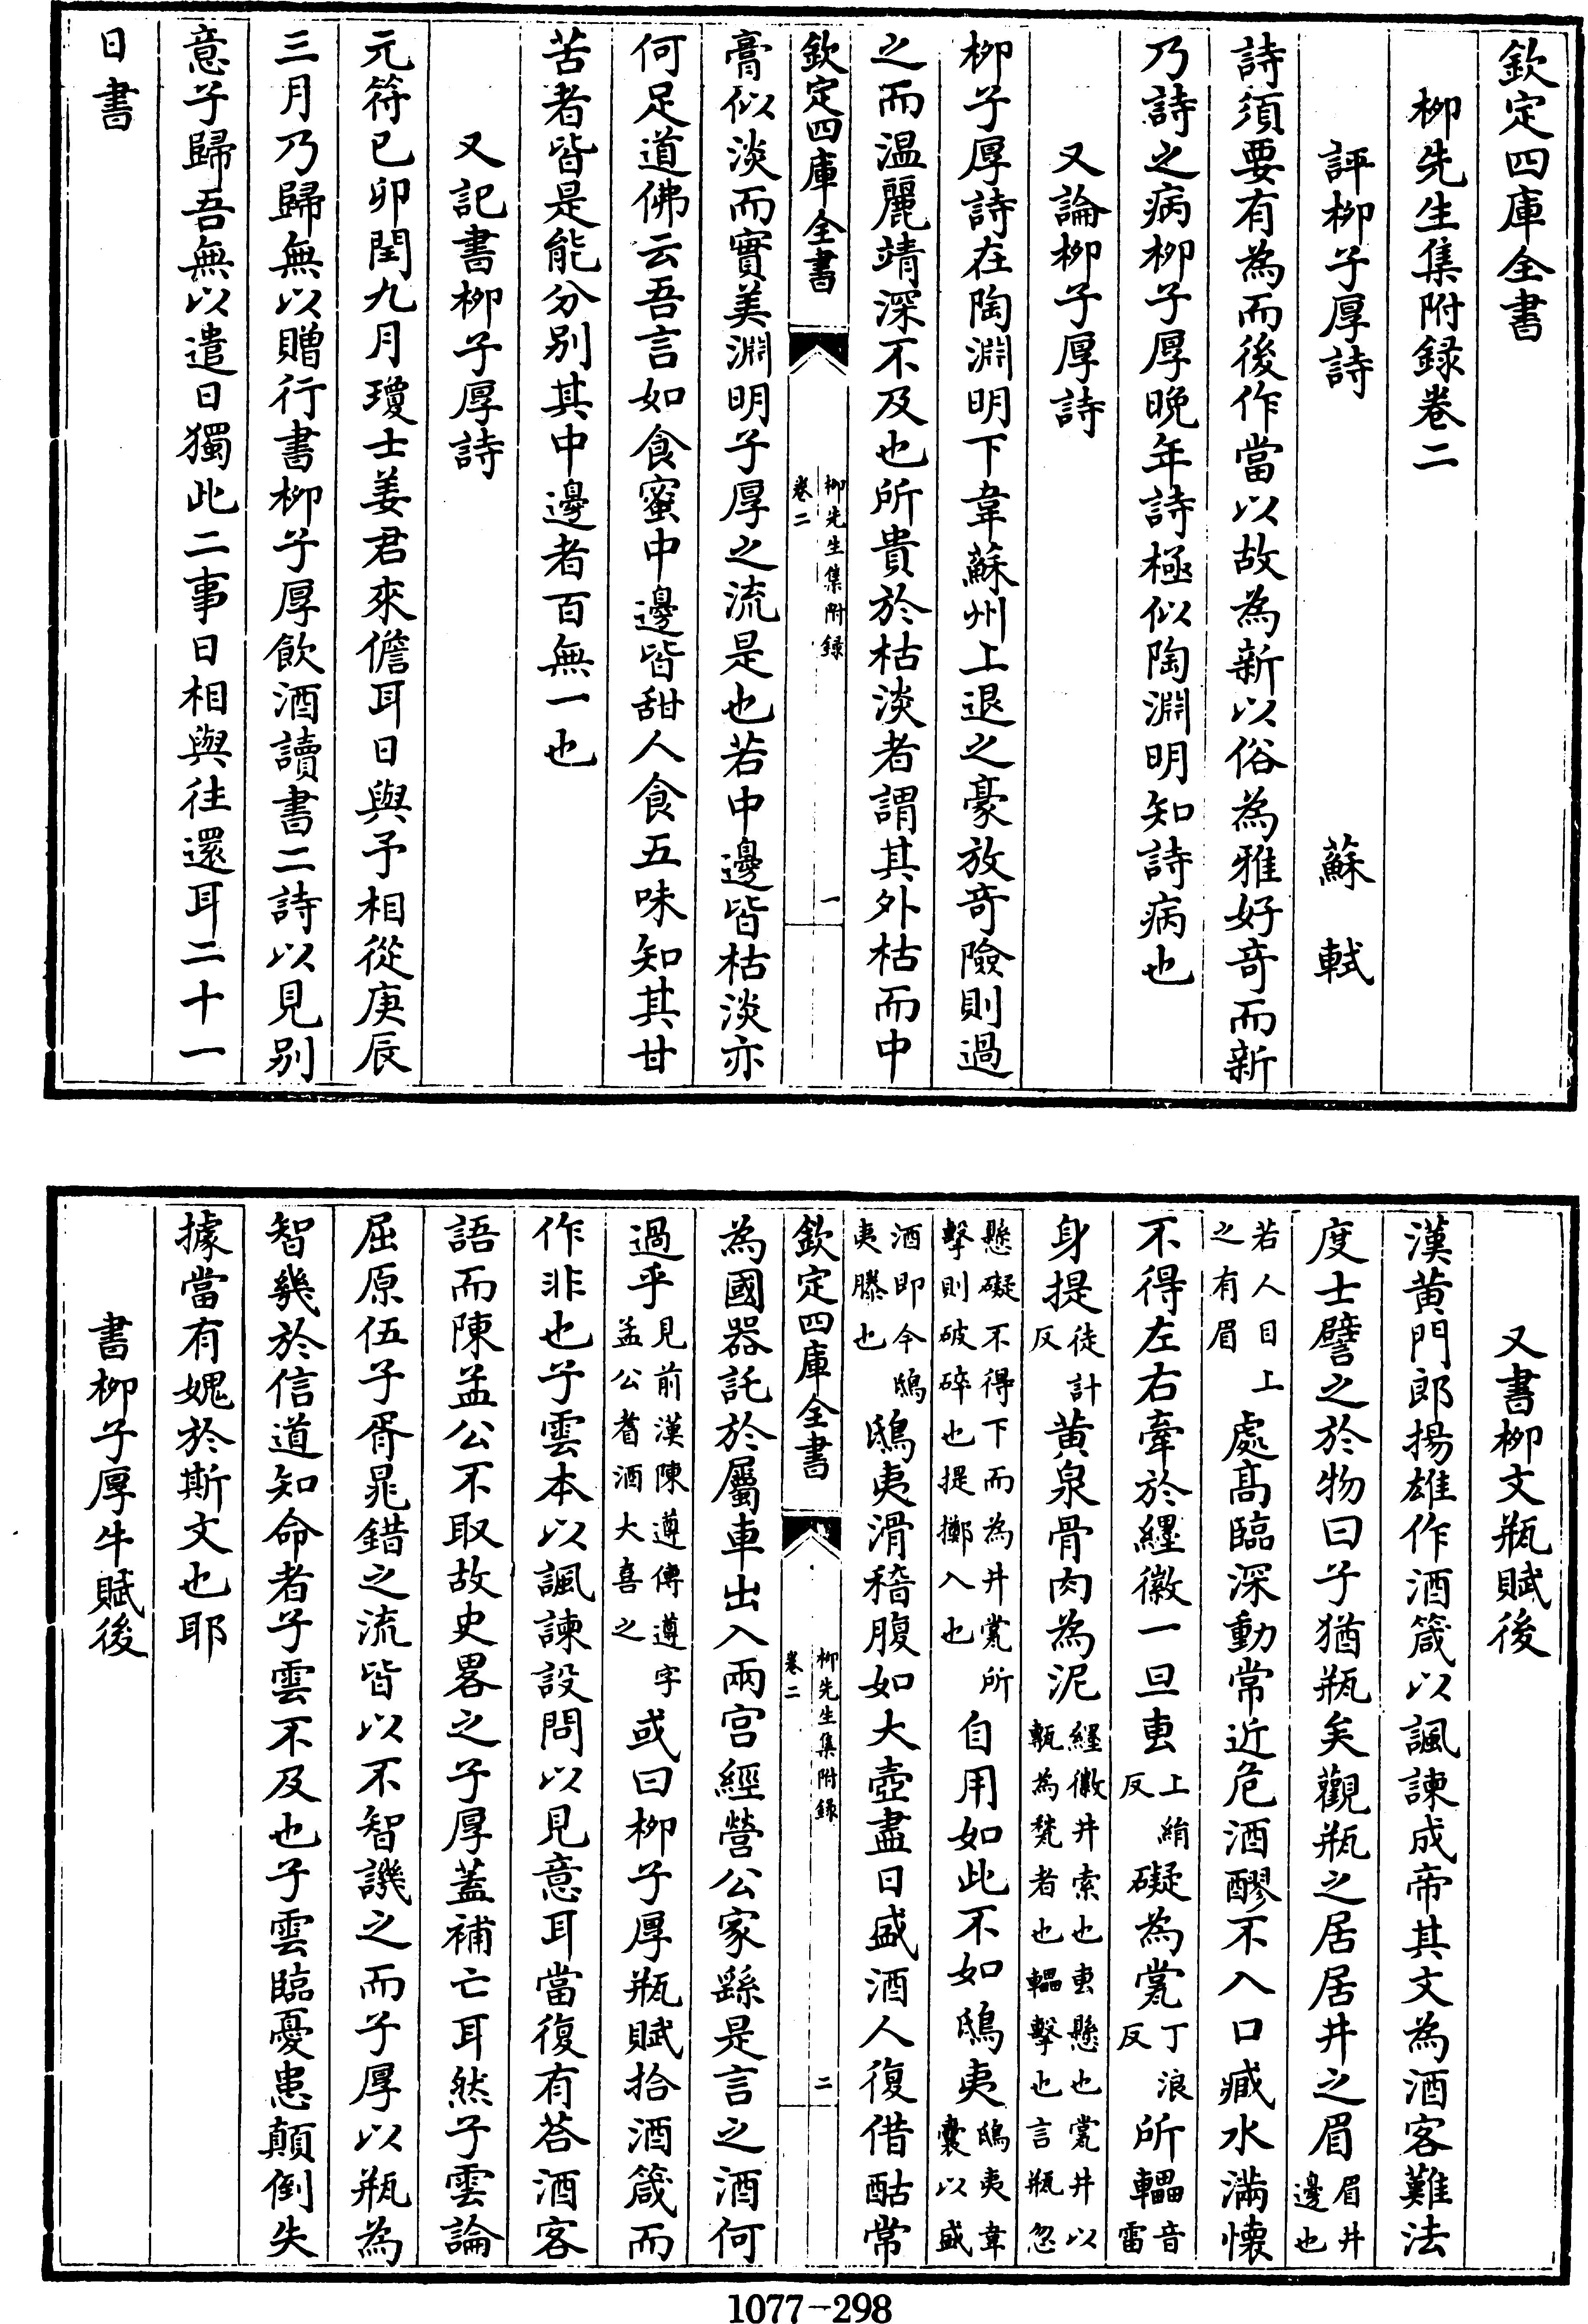 欽定四庫全書
柳先生集附録卷二
評柳子厚詩　蘇軾
詩須要有為而後作當以故為新以俗為雅好奇而新
乃詩之病柳子厚晚年詩極似陶淵明知詩病也
又論柳子厚詩
柳子厚詩在陶淵明下韋蘇州上退之豪放奇險則過
之而温麗靖深不及也所貴於枯淡者謂其外枯而中
欽定四庫全書
柳先生集附録
卷二
一
膏似淡而實美淵明子厚之流是也若中邊皆枯淡亦
何足道佛云吾言如食蜜中邊皆甜人食五味知其甘
苦者皆是能分别其中邊者百無一也
又記書柳子厚詩
元符已卯閏九月瓊士姜君來儋耳日與予相從庚辰
三月乃歸無以贈行書柳子厚飲酒讀書二詩以見别
意子歸吾無以遣日獨此二事日相與往還耳二十一
日書
又書柳文瓶賦後
漢黄門郎揚雄作酒箴以諷諫成帝其文為酒客難法
度士譬之於物曰子猶瓶矣觀瓶之居居井之眉眉井邊也
若人目上之有眉處髙臨深動常近危酒醪不入口臧水滿懷
不得左右牽於纆徽一旦叀上絹反礙為瓽丁浪反所轠音雷
身提徒計反黄泉骨肉為泥纆徽井索也叀懸也瓽井以甎為甃者也轠擊也言瓶忽
懸礙不得下而為井瓽所擊則破碎也提擲入也自用如此不如鴟夷鴟夷韋囊以盛
酒即今鴟夷縢也鴟夷滑稽腹如大壺盡日盛酒人復借酤常
欽定四庫全書
柳先生集附録
卷二
二
為國器託於屬車出入兩宮經營公家繇是言之酒何
過乎見前漢陳遵傳遵字孟公嗜酒大喜之或曰柳子厚瓶賦拾酒箴而
作非也子雲本以諷諫設問以見意耳當復有荅酒客
語而陳孟公不取故史畧之子厚蓋補亡耳然子雲論
屈原伍子胥晁錯之流皆以不智譏之而子厚以瓶為
智幾於信道知命者子雲不及也子雲臨憂患顛倒失
據當有媿於斯文也耶
書柳子厚牛賦後
1077-298